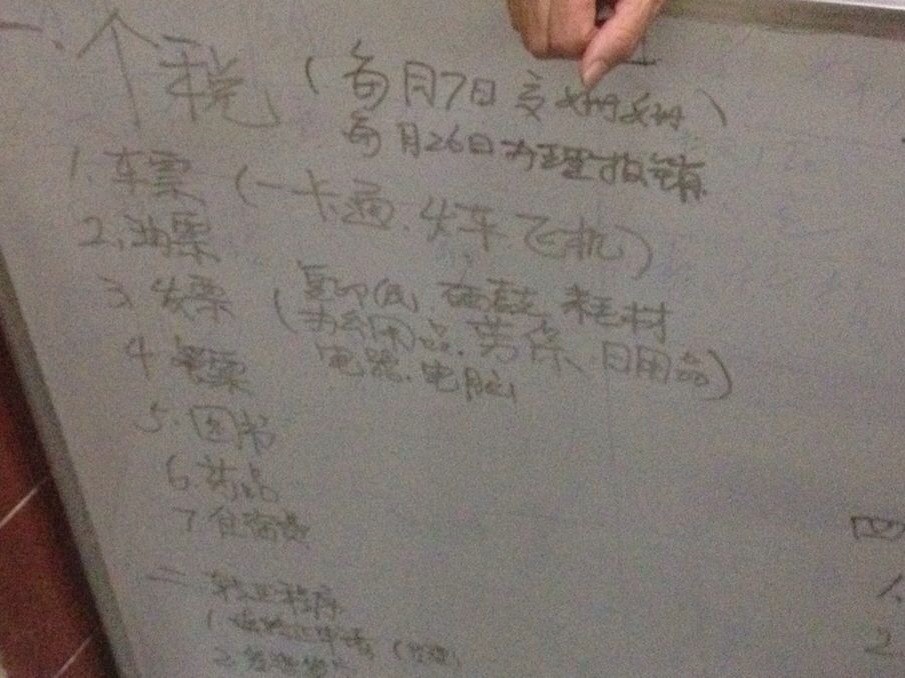 一、个税（每月7日交
每月26日办理报销
1.车票（一卡通、火车、飞机）
2.油票
3.发票（复印纸、硒鼓、耗材
办公用品、劳保、日用品）
4.
电器、电脑
5.图书
6.药品
7.住宿费
二、转正程序
1.
2.
四
1.
2.